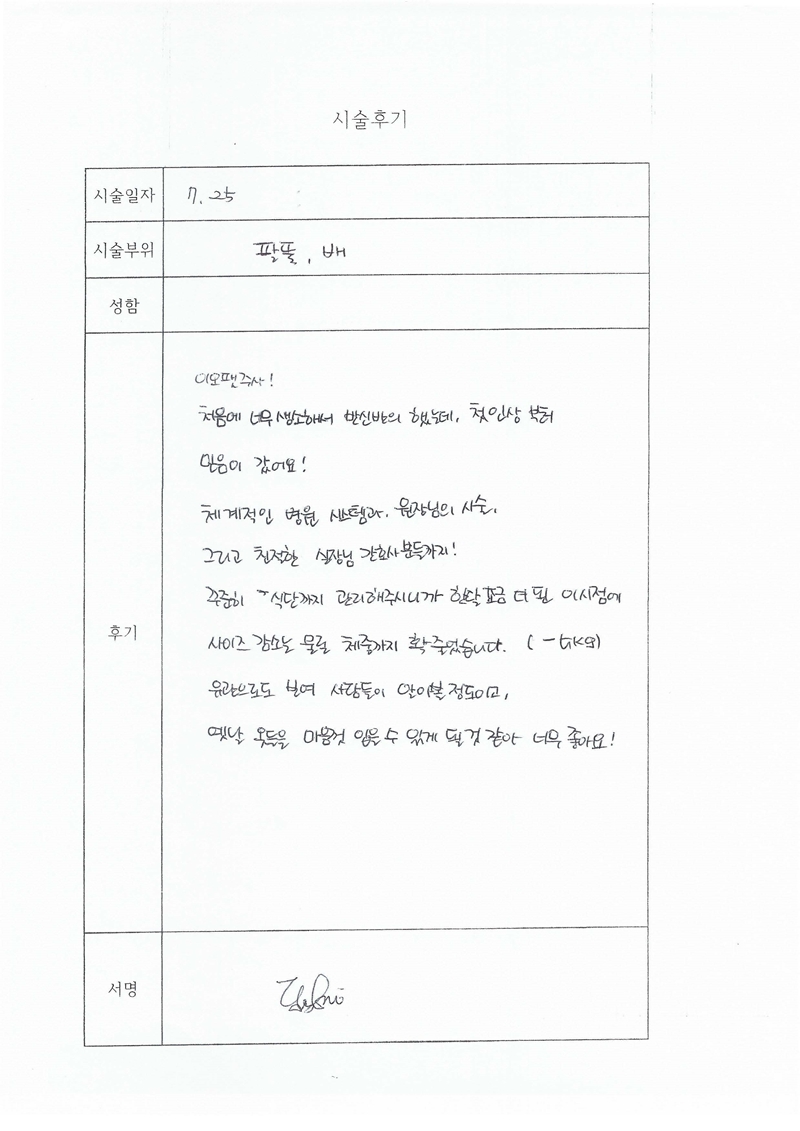 시술후기
시술일자 7. 25
시술부위 팔뚤, 배
성함
후기
이오팬주사!
처음에 너무 생소해서 반신반의 했는데, 첫인상 부터
믿음이 갔어요!
체계적인 병원 시스템과, 원장님의 시술,
그리고 친절한 실장님 간호사분들까지!
꾸준히 식단까지 관리해주시니까 한달 조금 더 된 이시점에
사이즈 감소는 물론 체중까지 확 줄었습니다.
육안으로도 보여 사람들이 알아볼 정도이고,
옛날 옷들을 마음껏 입을 수 있게 될것 같아 너무 좋아요!
서명